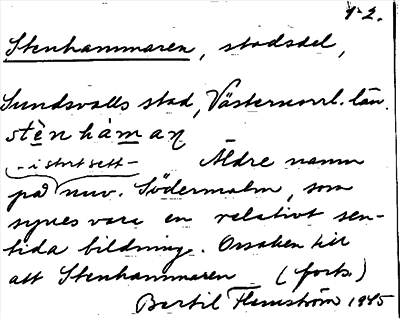 1-2.
Stenhammaren, stadsdel,
Sundsvalls stad, Västernorrl. län.
stènhàmaṛ
- i stort sett - Äldre namn
på nuv. Södermalm, som
synes vara en relativt sen-
tida bildning. Orsaken till
att Stenhammaren (forts)
Bertil Flemström 1945